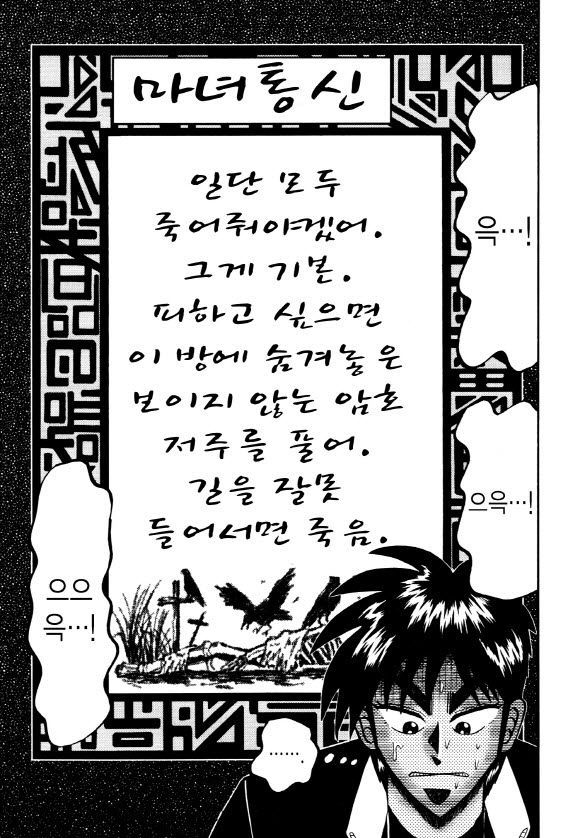 마녀통신
일단 모두
죽어줘야겠어.
그게 기본.
피하고 싶으면
이 방에 숨겨놓은
보이지 않는 암호
저주를 풀어.
길을 잘못
들어서면 죽음.
윽…!
으윽…!
으으
윽…!
…….